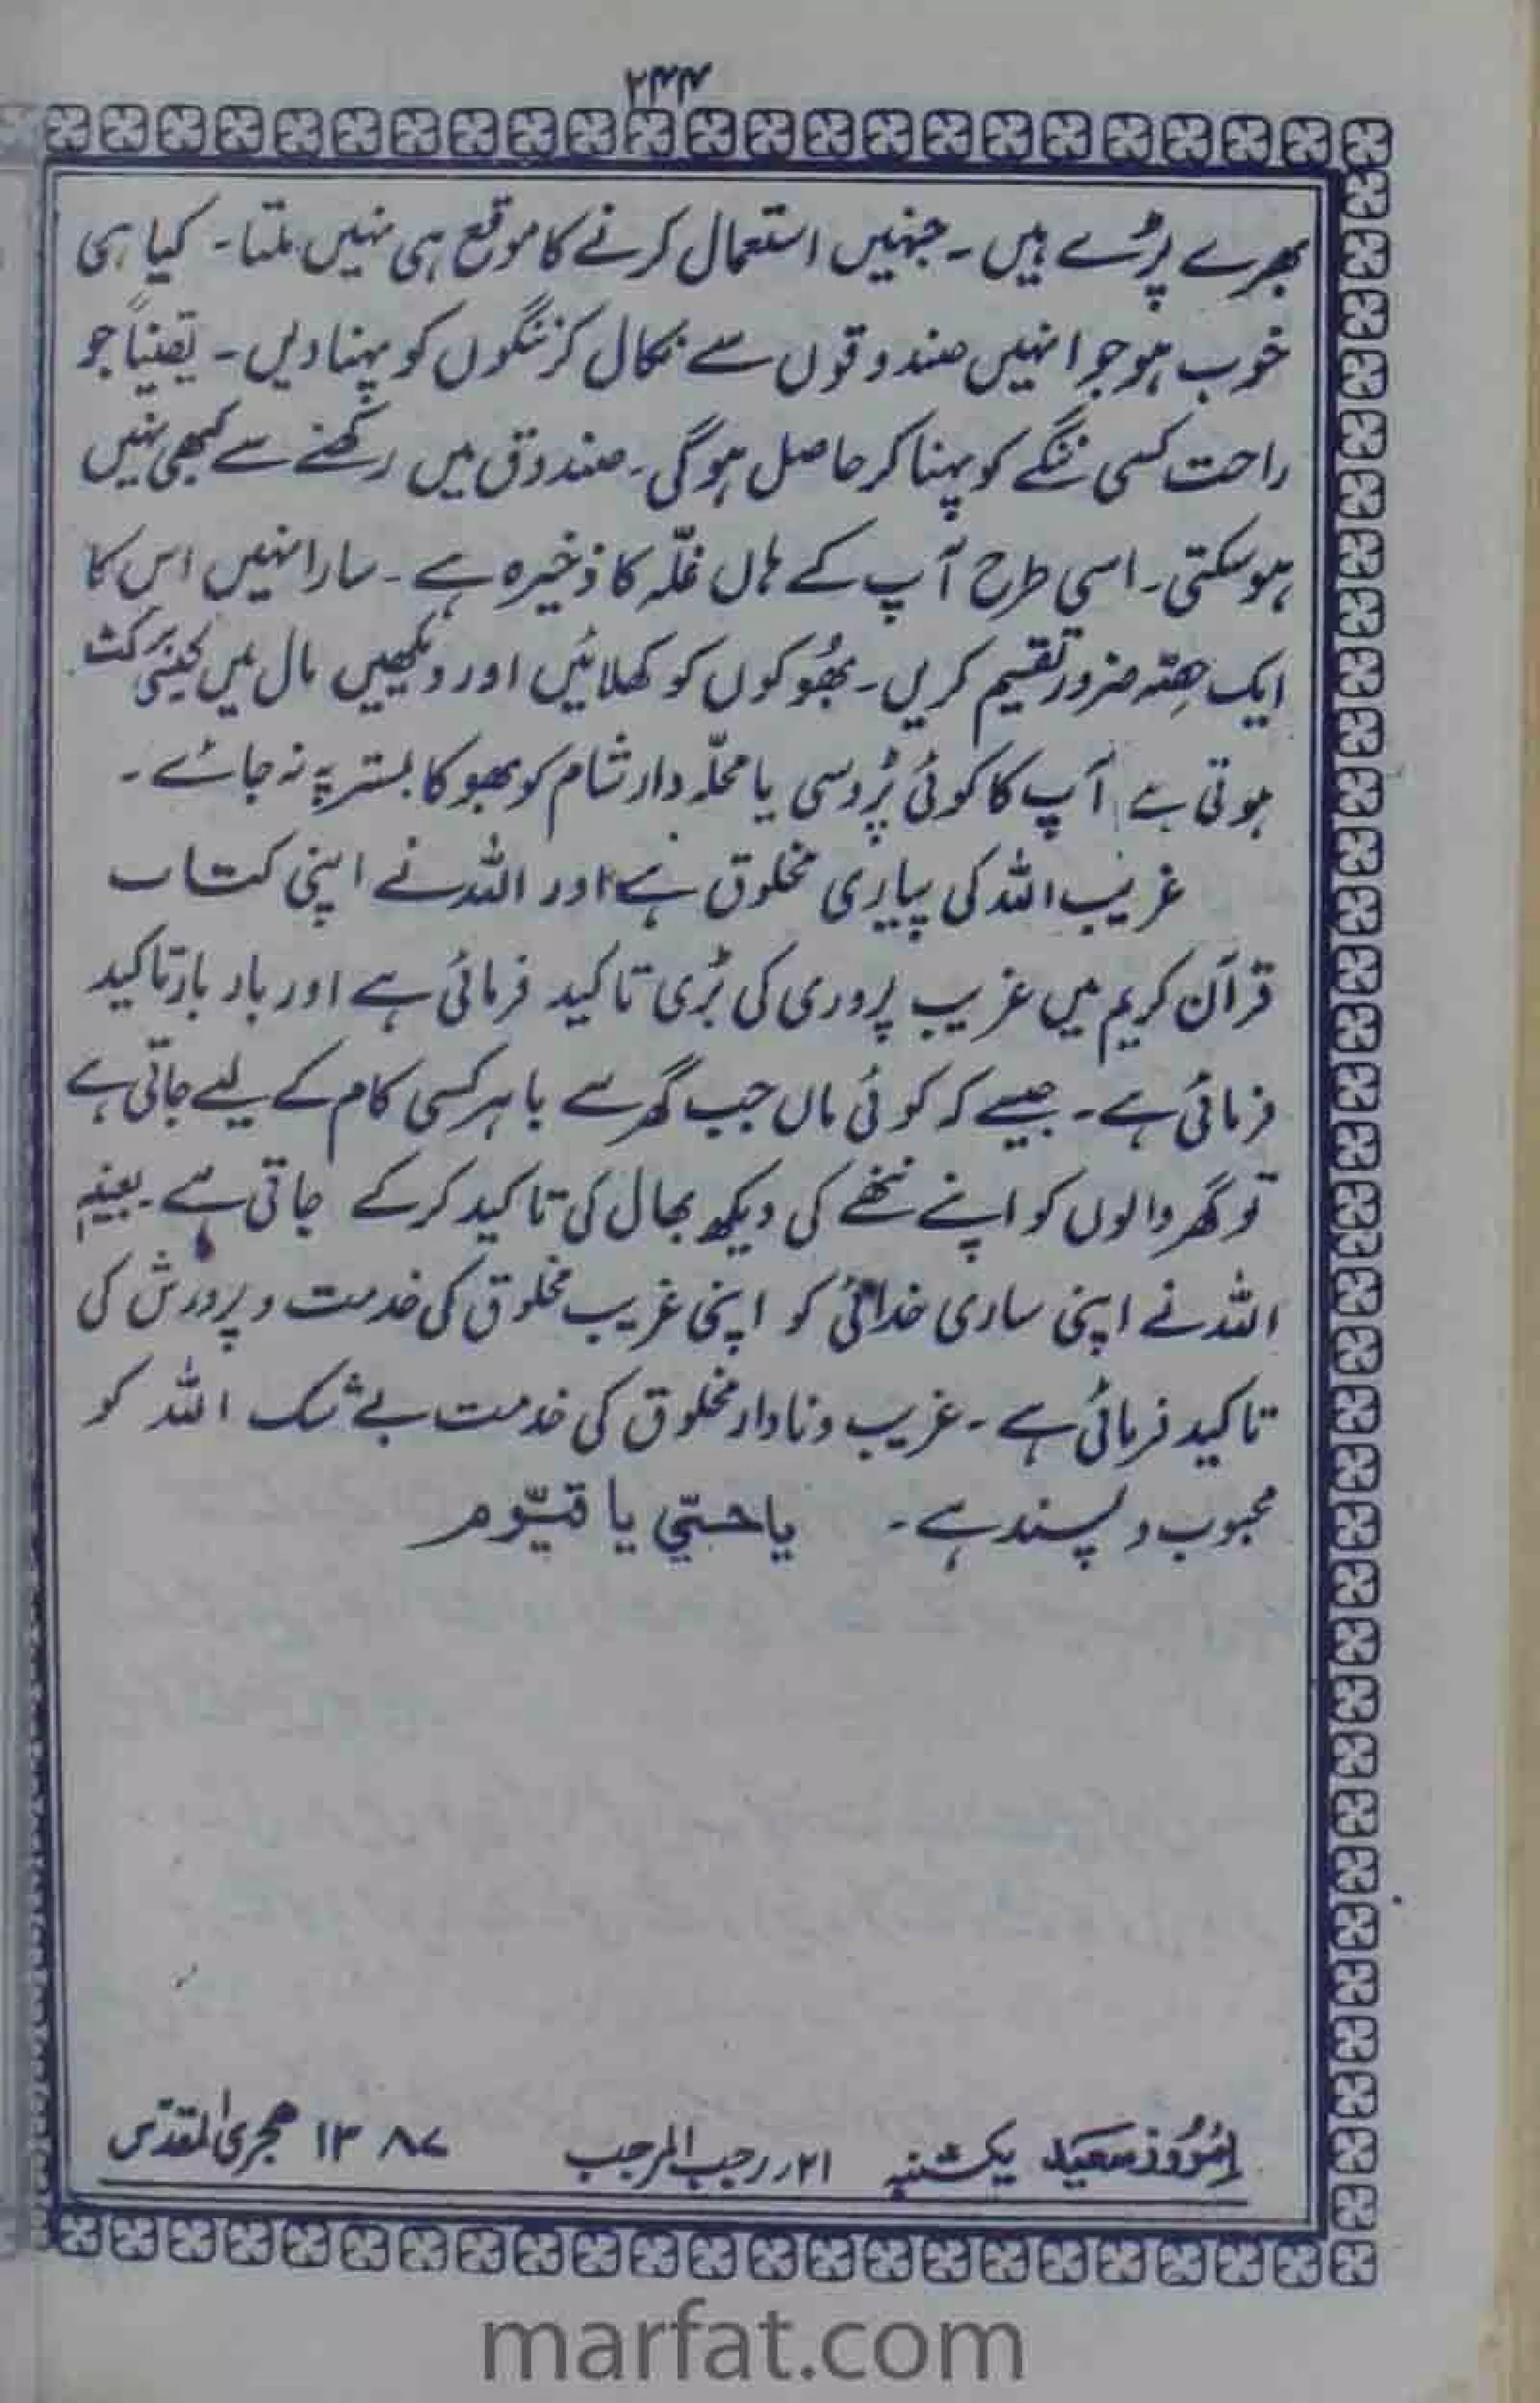 ۲۴۴
بھرے پڑے ہیں ۔ جنہیں استعمال کرنے کا موقع ہی نہیں ملتا ۔ کیا ہی
خوب ہو جو انہیں صندوقوں سے نکال کر ننگوں کو پہنا دیں ۔ یقیناً جو
راحت کسی ننگے کو پہنا کر حاصل ہوگی ۔ صندوق میں رکھنے سے کبھی نہیں
ہوسکتی ۔ اسی طرح آپ کے ہاں غلّہ کا ذخیرہ ہے ۔ سارا نہیں اس کا
ایک حِصّہ ضرور تقسیم کریں ۔ بھُوکوں کو کھلائیں اور دیکھیں مال میں کیسی برکت
ہوتی ہے آپ کا کوئی پڑوسی یا محلّہ دار شام کو بھوکا بستر پہ نہ جائے ۔
غریب اللہ کی پیاری مخلوق ہے اور اللہ نے اپنی کتاب
قرآن کریم میں غریب پروری کی بڑی تاکید فرمائی ہے اور بار بار تاکید
فرمائی ہے ۔ جیسے کہ کوئی ماں جب گھر سے باہر کسی کام کے لیے جاتی ہے
تو گھر والوں کو اپنے ننھے کی دیکھ بھال کی تاکید کرکے جاتی ہے ۔ بعینہٖ
اللہ نے اپنی ساری خدائی کو اپنی غریب مخلوق کی خدمت و پرورش کی
تاکید فرمائی ہے ۔ غریب و نادار مخلوق کی خدمت بے شک اللہ کو
محبوب و پسند ہے ۔ یا حیّی یا قیّوم
اِمرُوز سعید یکشنبہ ۲۱ رجب المرجب ۱۳۸۷ ھجری المقدّس
marfat.com